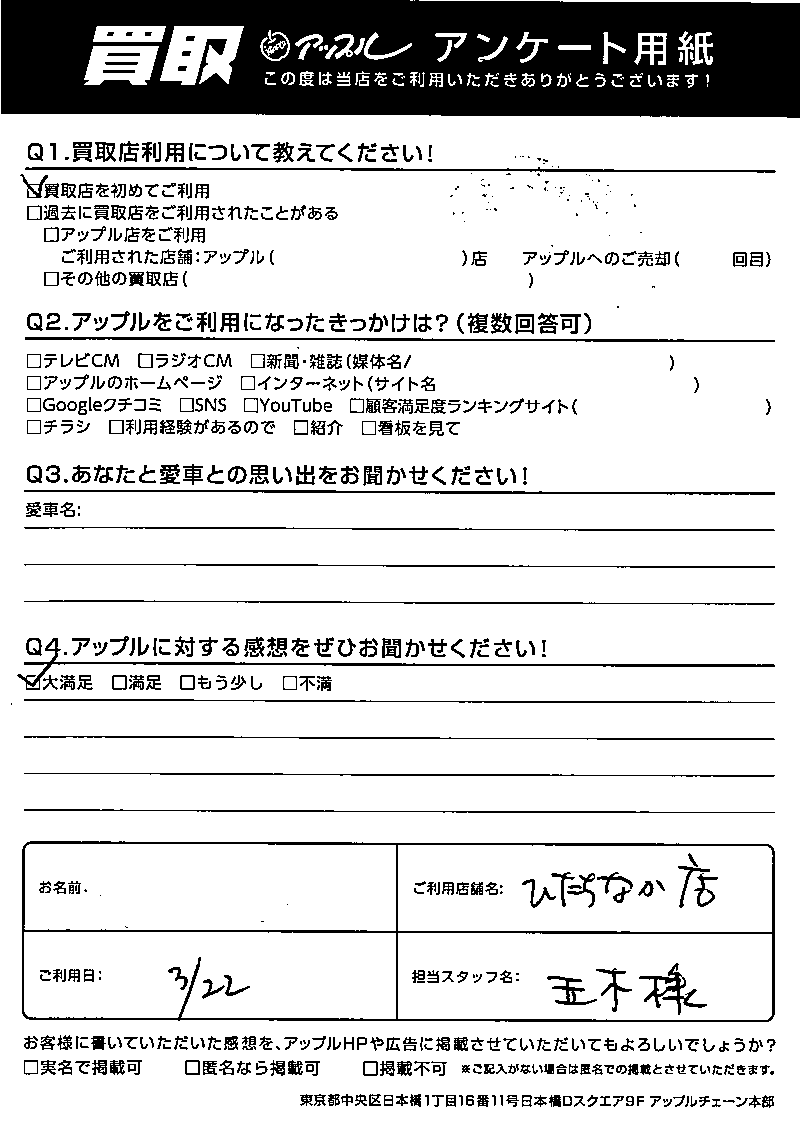 買取 アップル アンケート用紙
この度は当店をご利用いただきありがとうございます!
Q1.買取店利用について教えてください!
☑買取店を初めてご利用
□過去に買取店をご利用されたことがある
□アップル店をご利用
ご利用された店舗:アップル( )店 アップルへのご売却( 回目)
□その他の買取店( )
Q2.アップルをご利用になったきっかけは?(複数回答可)
□テレビCM □ラジオCM □新聞・雑誌(媒体名/ )
□アップルのホームページ □インターネット(サイト名 )
□Googleクチコミ □SNS □YouTube □顧客満足度ランキングサイト( )
□チラシ □利用経験があるので □紹介 □看板を見て
Q3.あなたと愛車との思い出をお聞かせください!
愛車名:
Q4.アップルに対する感想をぜひお聞かせください!
☑大満足 □満足 □もう少し □不満
お名前.
ご利用店舗名: ひたちなか店
ご利用日: 3/22
担当スタッフ名: 玉木様
お客様に書いていただいた感想を、アップルHPや広告に掲載させていただいてもよろしいでしょうか?
□実名で掲載可 □匿名なら掲載可 □掲載不可 ※ご記入がない場合は匿名での掲載とさせていただきます。
東京都中央区日本橋1丁目16番11号日本橋Dスクエア9F アップルチェーン本部